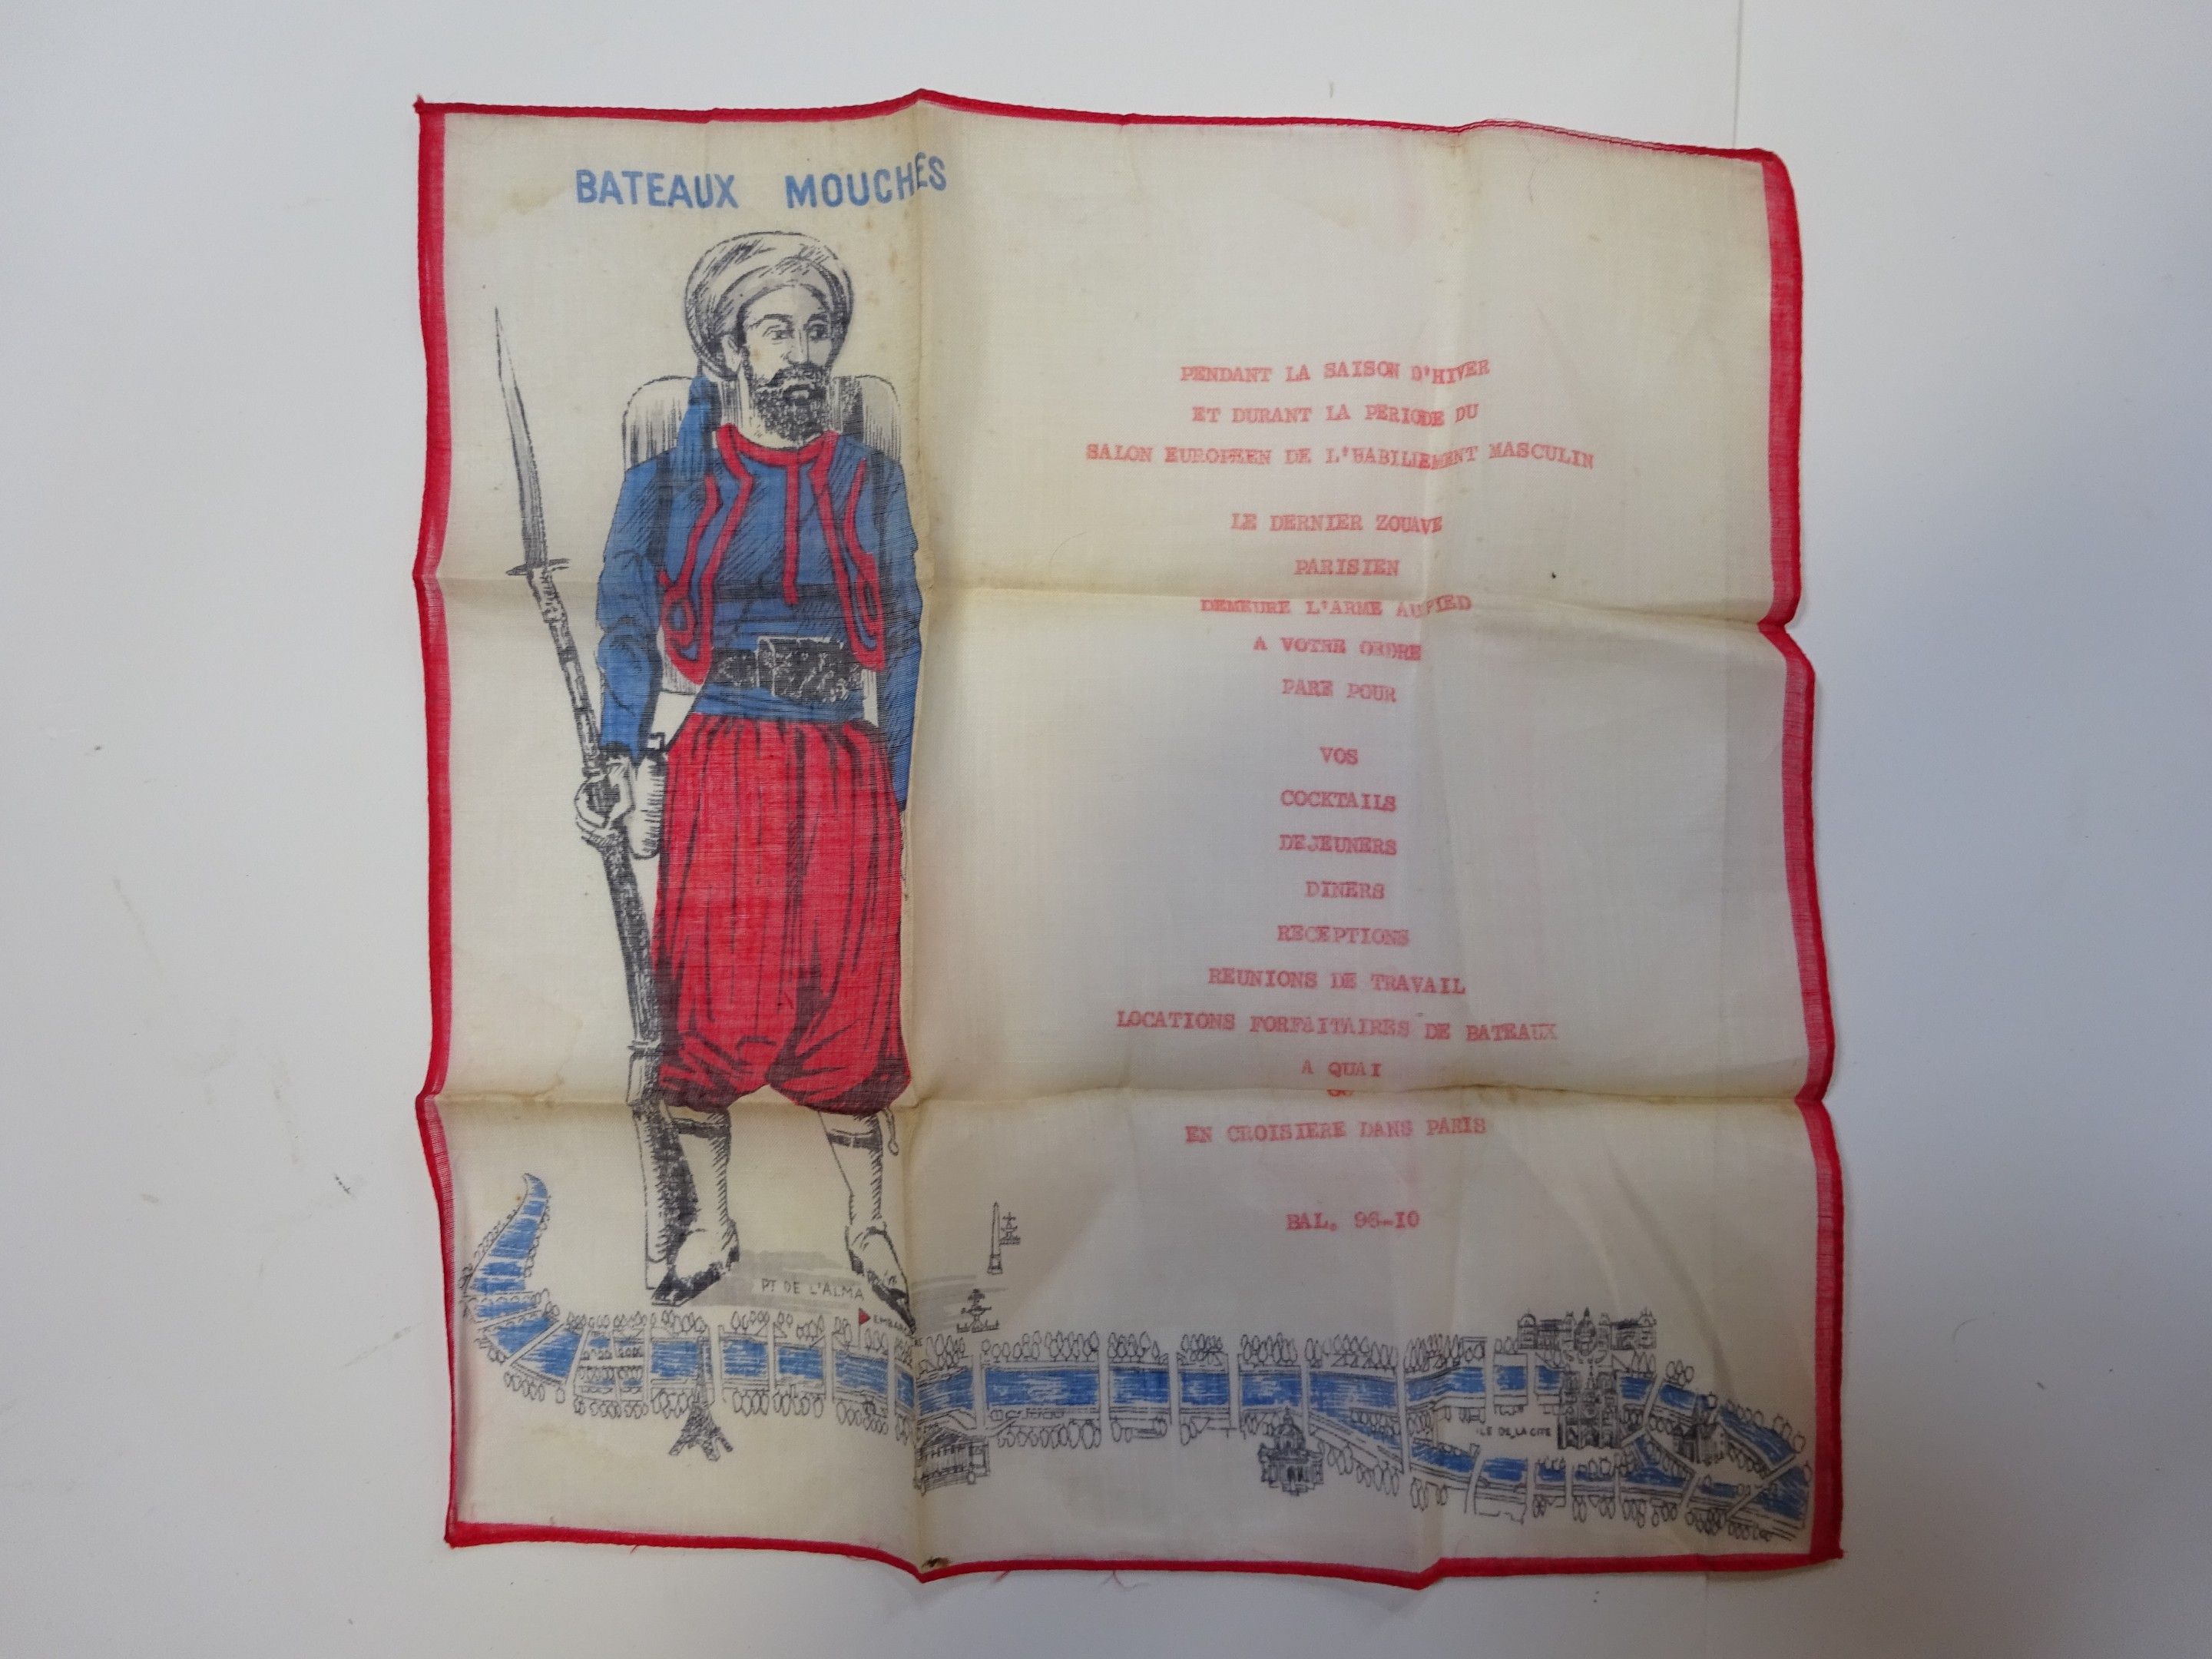 BATEAUX MOUCHES
PENDANT LA SAISON D'HIVER
ET DURANT LA PERIODE DU
SALON EUROPEEN DE L'HABILLEMENT MASCULIN
LE DERNIER ZOUAVE
PARISIEN
DEMEURE L'ARME AU PIED
A VOTRE ORDRE
PARE POUR
VOS
COCKTAILS
DEJEUNERS
DINERS
RECEPTIONS
REUNIONS DE TRAVAIL
LOCATIONS FORFAITAIRES DE BATEAUX
A QUAI
OU
EN CROISIERE DANS PARIS
BAL. 96-10
PT DE L'ALMA
ILE DE LA CITE